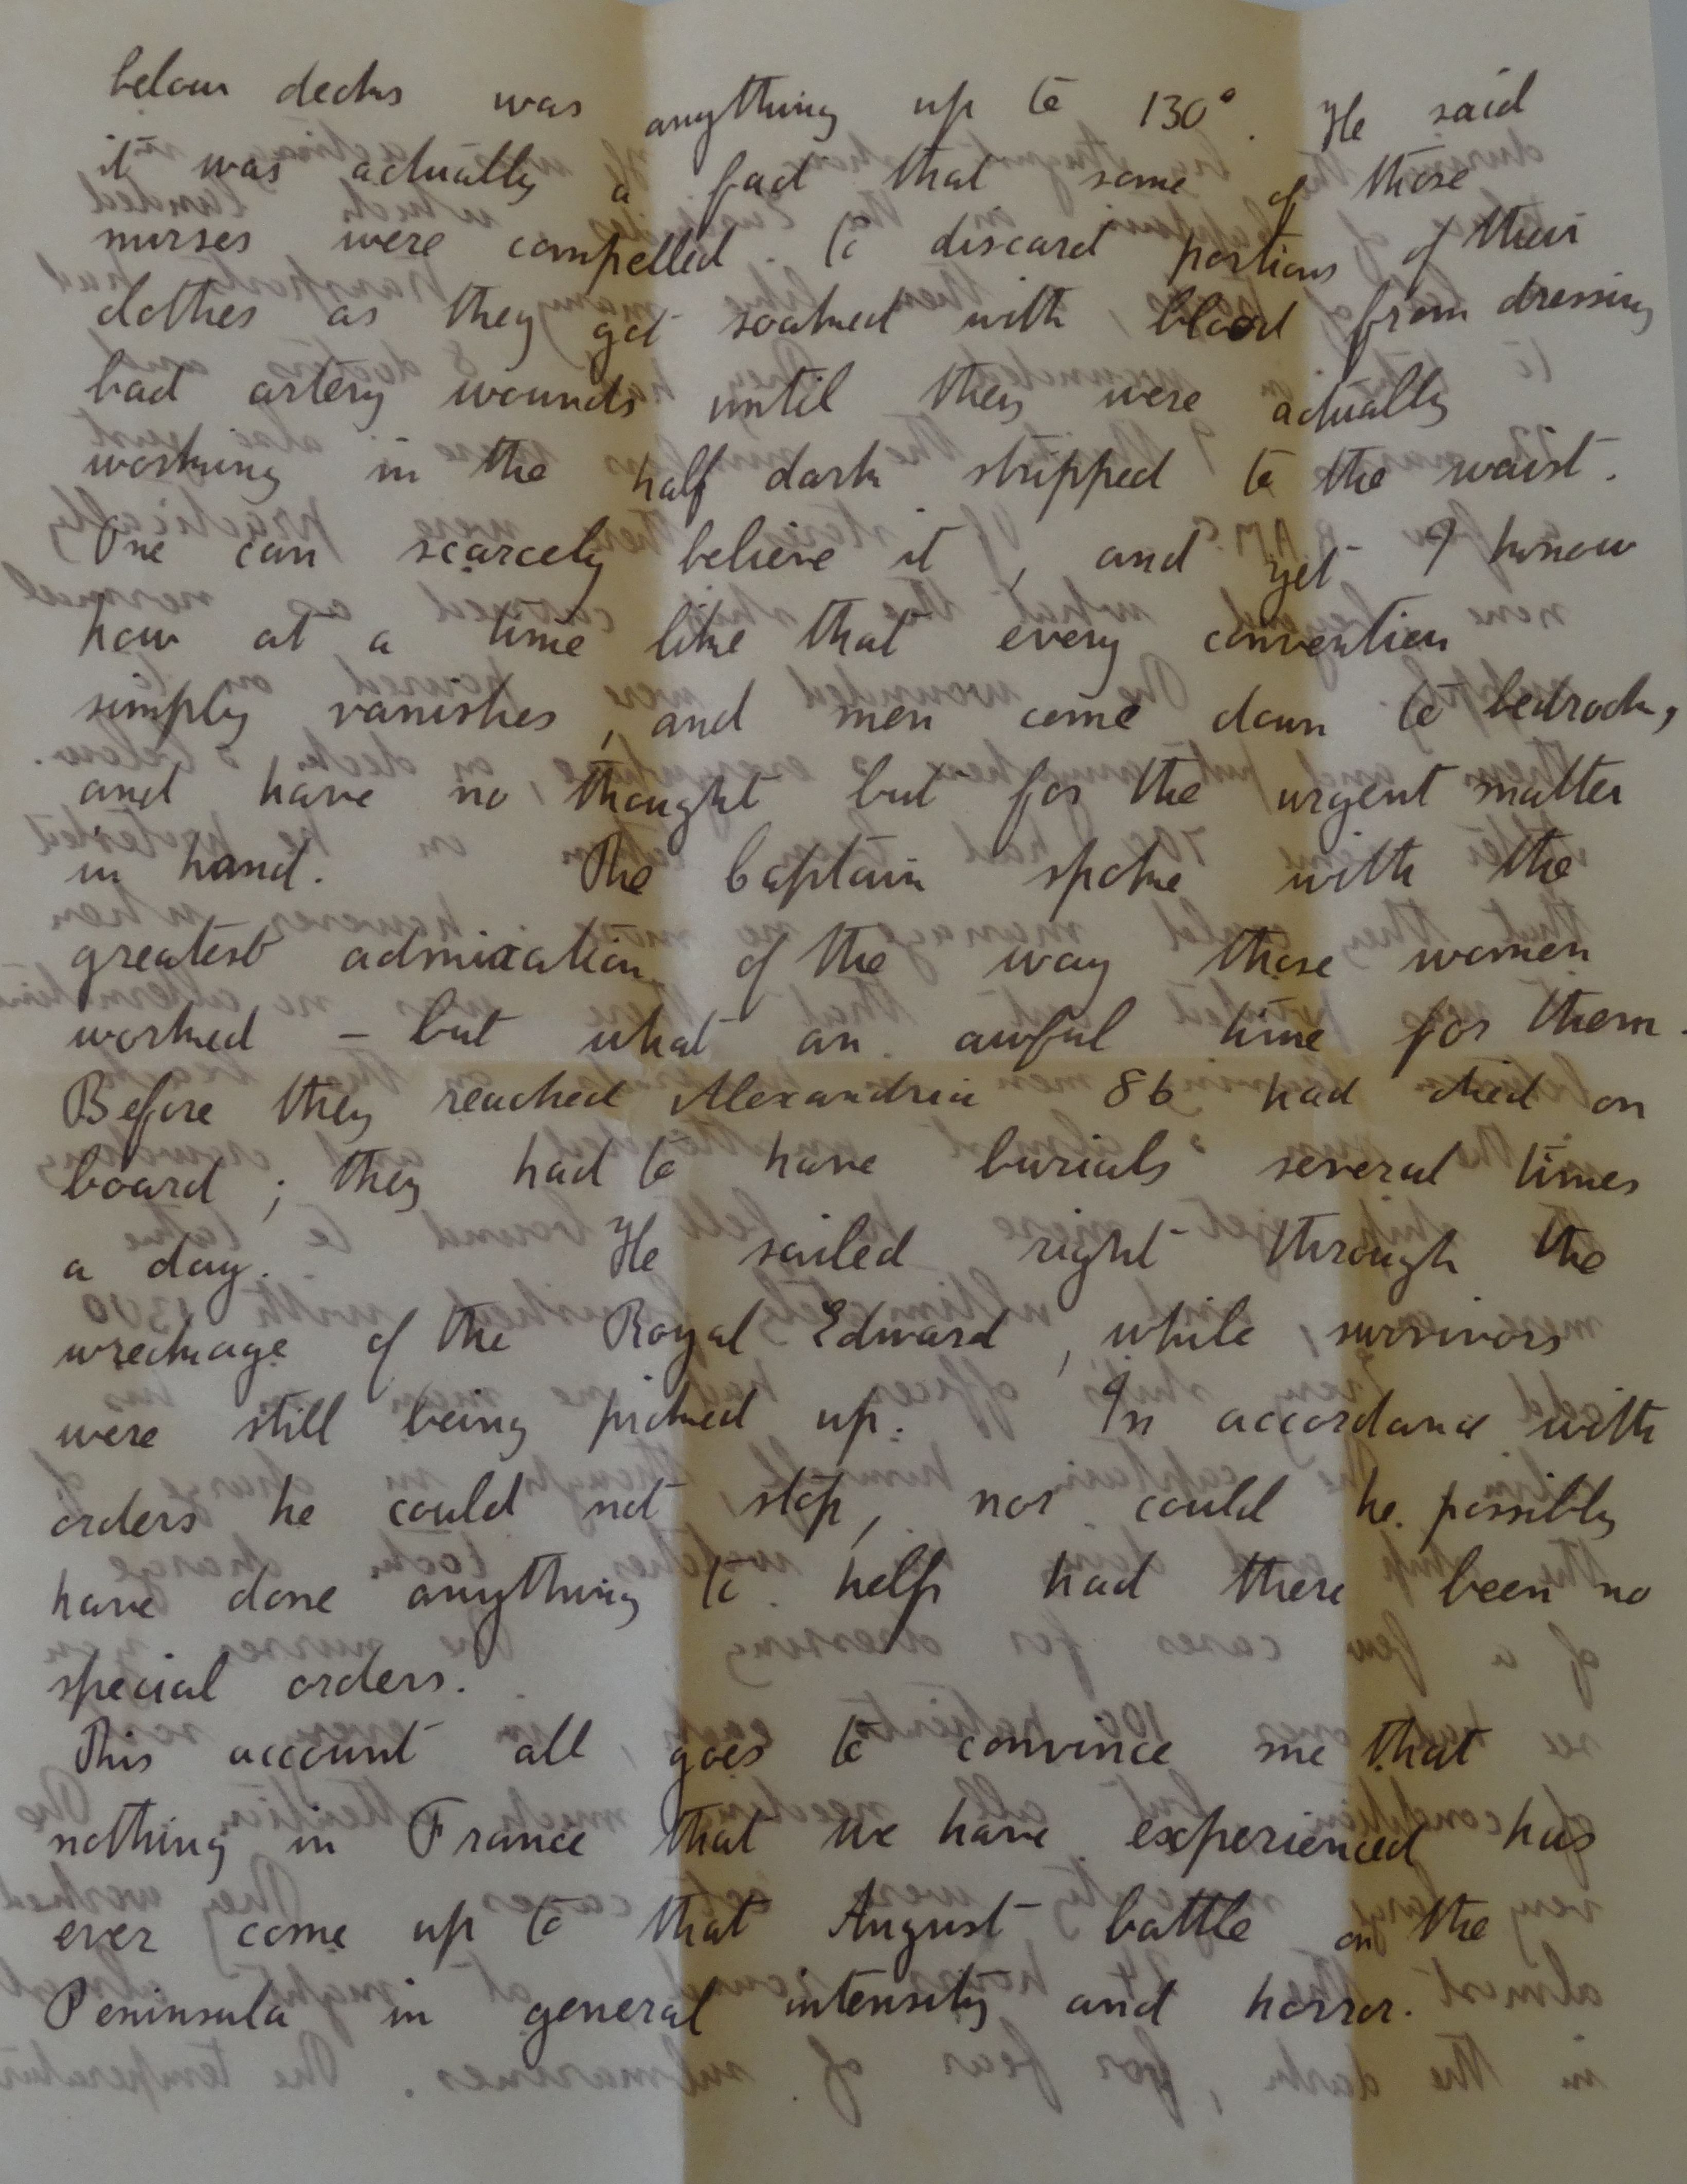 below decks was anything up to 130°. He said
it was actually a fact that some of those
nurses were compelled to discard portions of their
clothes as they got soaked with blood from dressing
bad artery wounds until they were actually
working in the half dark stripped to the waist.
One can scarcely believe it, and yet I know
how at a time like that every convention
simply vanishes, and men come down to bedrock,
and have no thought but for the urgent matter
in hand. The Captain spoke with the
greatest admiration of the way those women
worked – but what an awful time for them.
Before they reached Alexandria 86 had died on
board; they had to have burials several times
a day. He sailed right through the
wreckage of the Royal Edward, while survivors
were still being picked up. In accordance with
orders he could not stop, nor could he possibly
have done anything to help had there been no
special orders.
This account all goes to convince me that
nothing in France that we have experienced has
ever come up to that August battle on the
Peninsula in general intensity and horror.